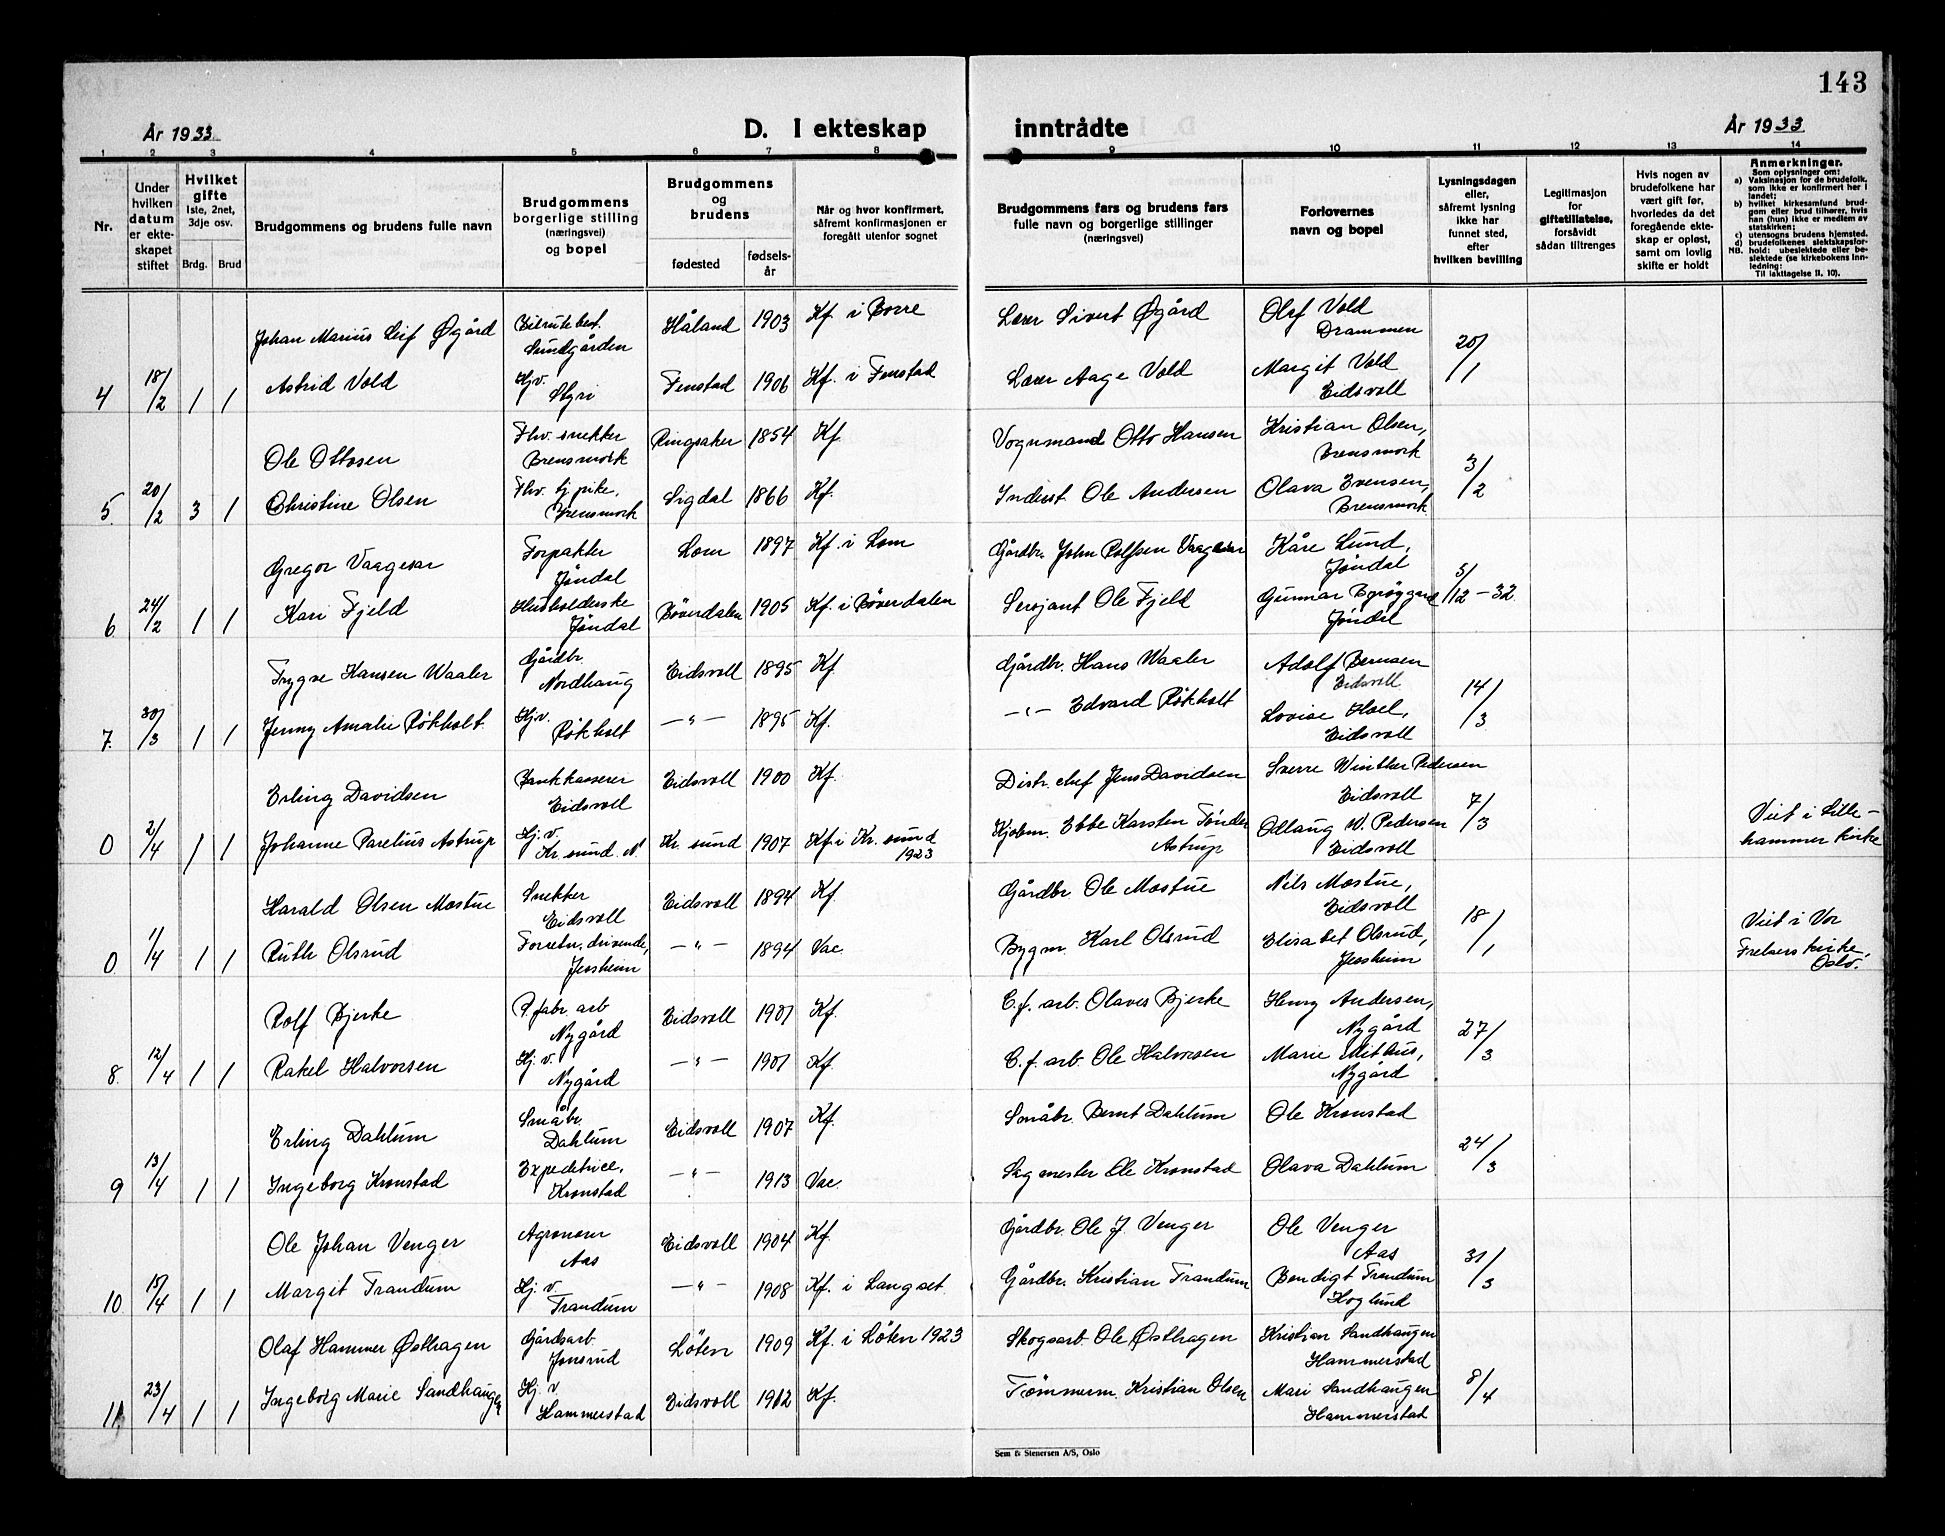 143
År 1933
D. I ekteskap
inntrådte
År 1933
1 2 3 4 5 6 7 8 9 10 11 12 13 14
Nr.
Under hvilken datum er ekteskapet stiftet
Hvilket gifte
Iste, 2net, 3dje osv.
Brdg. Brud
Brudgommens og brudens fulle navn
Brudgommens borgerlige stilling (næringsvei) og bopel
Brudgommens og brudens
fødested
fødselsår
Når og hvor konfirmert, såfremt konfirmasjonen er foregått utenfor sognet
Brudgommens fars og brudens fars fulle navn og borgerlige stillinger (næringsvei)
Forlovernes navn og bopel
Lysningsdagen eller, såfremt lysning ikke har funnet sted, efter hvilken bevilling
Legitimasjon for giftetillatelse, forsåvidt sådan tiltrenges
Hvis nogen av brudefolkene har vært gift før, hvorledes da det foregående ekteskap er opløst, samt om lovlig skifte er holdt
Anmerkninger.
Som oplysninger om:
a) Vaksinasjon for de brudefolk, som ikke er konfirmert her i landet;
b) hvilket kirkesamfund brudgom eller brud tilhører, hvis han (hun) ikke er medlem av statskirken;
c) utensogns brudens hjemsted.
d) brudefolkenes slektskapsforhold: ubeslektede eller beslektede (se kirkebokens Innledning:
NB. Til iakttagelse II, 10).
Johan Marius Leif Øgård Bilrutebest. Sundgården Håland 1903 Kf. i Borre Lærer Sivert Øgård Olaf Vold Drammen
4 18/2 1 1 Astrid Vold Hj.v. Styri Fenstad 1906 Kf. i Fenstad Lærer Aage Vold Margit Vold Eidsvoll 20/1
Ole Ottosen Fhv. snekker Brensmork Ringsaker 1854 Kf. Vognmand Otto Hansen Kristian Olsen, Brensmork
5. 20/2 3 1 Christine Olsen Fhv. tj.pike, Brensmork Sigdal 1866 Kf. Inderst Ole Andersen Olava Evensen, Brensmork 3/2
Gregor Vaagesar Forpakter Jøndal Lom 1897 Kf. i Lom Gårdbr. John Rolfsen Vaagesar Kåre Lund, Jøndal
6 24/2 1 1 Kari Fjeld Husholderske Jøndal Bøverdalen 1905 Kf. i Bøverdalen Sersjant Ole Fjeld Gunnar Jøndal 5/12 - 32
Trygve Hansen Waaler Gårdbr. Nordhaug Eidsvoll 1895 Kf. Gårdbr. Hans Waaler Adolf Berntsen Eidsvoll
7. 30/3 1 1 Jenny Amalie Røkholt Hj.v. Røkholt -"- 1895 Kf. -"- Edvard Røkholt Lovise Hoel, Eidsvoll 14/3
Erling Davidsen Bankkasserer Eidsvoll Eidsvoll 1900 Kf. Distr. chef Jens Davidsen Sverre Winther Pedersen Eidsvoll
0 2/4 1 1 Johanne Parelius Astrup Hj.v. Kr.sund N. Kr. sund 1907 Kf. i Kr. sund 1923 Kjøbm. Ebbe Karsten Tønder Astrup Odlaug W. Pedersen Eidsvoll 7/3 Viet i Lillehammer kirke
Harald Olsen Mostue Snekker Eidsvoll Eidsvoll 1894 Kf. Gårdbr. Ole Mostue Nils Mostue, Eidsvoll
0 1/4 1 1 Ruth Olsrud Forretn. drivende, Jessheim -"- 1894 Vac. Bygm. Karl Olsrud Elisabet Olsrud, Jessheim 18/1 Viet i Vor Frelsers kirke, Oslo.
Rolf Bjerke P.fabr. arb Nygård Eidsvoll 1901 Kf. C.f. arb. Olaves Bjerke Henry Andersen, Nygård
8. 12/4 1 1 Rakel Halvorsen Hj.v. Nygård -"- 1901 Kf. C.f. arb. Ole Halvorsen Marie Nygård 27/3
Erling Dahlum Småbr. Dahlum Eidsvoll 1907 Kf. Småbr. Bernt Dahlum Ole Kronstad
9 13/4 1 1 Ingeborg Kronstad Expeditrice, Kronstad -"- 1913 Vac. Sagmester Ole Kronstad Olava Dahlum 24/3
Ole Johan Venger Agronom Aas Eidsvoll 1904 Kf. Gårdbr. Ole J. Venger Ole Venger Aas
10 15/4 1 1 Margit Trandum Hj.v. Trandum -"- 1908 Kf. i Langset Gårdbr. Kristian Trandum Bendigt Trandum Hoglund 31/3
Olaf Hammer Østhagen Gårdsarb. Jonsrud Løten 1909 Kf. i Løten 1923 Skogsarb. Ole Østhagen Kristian Sandhaugen Hammerstad
11 23/4 1 1 Ingeborg Marie Sandhaugen Hj.v Hammerstad Eidsvoll 1912 Kf. Tømmerm. Kristian Olsen Mari Sandhaugen Hammerstad 8/4
Sem & Stenersen A/S, Oslo